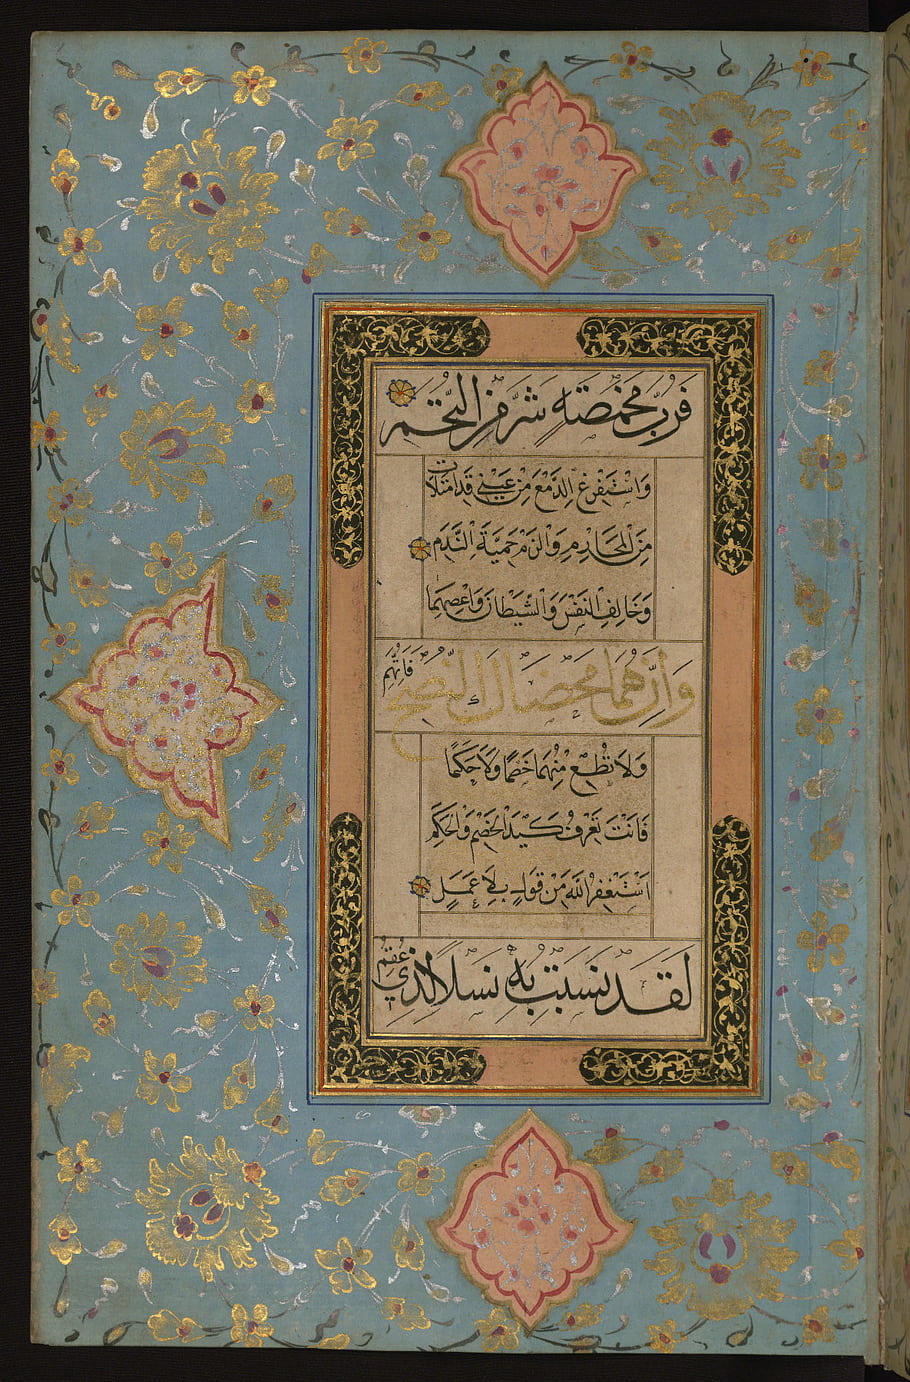 فَرُبَّ مَخْمَصَةٍ شَرٌّ مِنَ التُّخَمِ
وَاسْتَفْرِغِ الدَّمْعَ مِنْ عَيْنٍ قَدِ امْتَلَأَتْ
مِنَ الْمَحَارِمِ وَالْزَمْ حِمْيَةَ النَّدَمِ
وَخَالِفِ النَّفْسَ وَالشَّيْطَانَ وَاعْصِهِمَا
وَإِنْ هُمَا مَحَضَاكَ النُّصْحَ فَاتَّهِمِ
وَلَا تُطِعْ مِنْهُمَا خَصْمًا وَلَا حَكَمًا
فَأَنْتَ تَعْرِفُ كَيْدَ الْخَصْمِ وَالْحَكَمِ
أَسْتَغْفِرُ اللهَ مِنْ قَوْلٍ بِلَا عَمَلٍ
لَقَدْ نَسَبْتُ بِهِ نَسْلًا لِذِي عُقُمِ